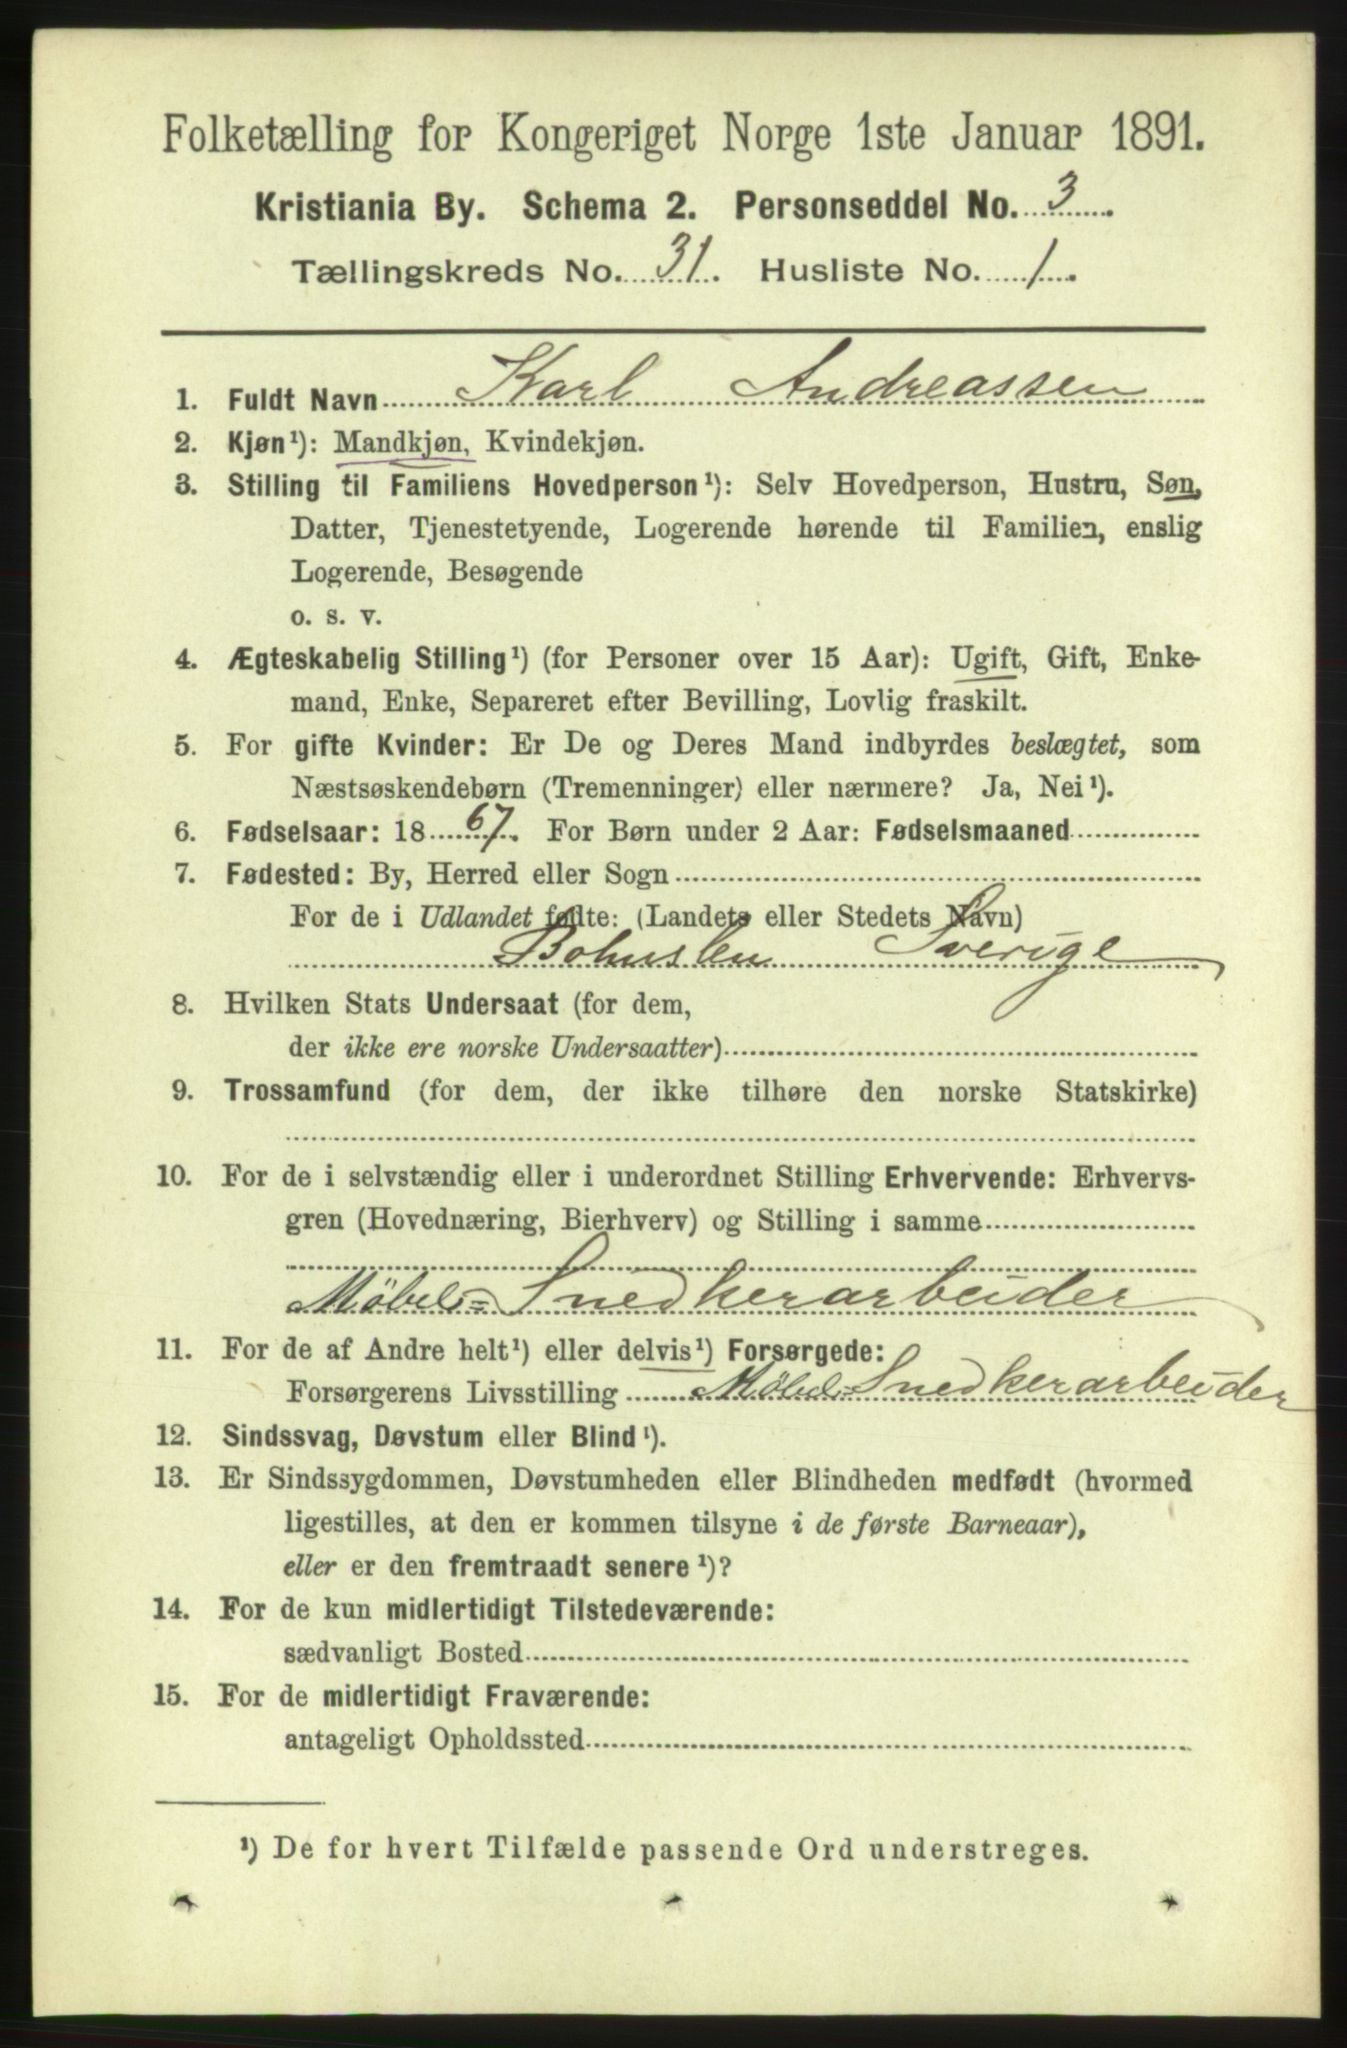 Folketælling for Kongeriget Norge 1ste Januar 1891.
Kristiania By. Schema 2. Personseddel No. 3.
Tællingskreds No. 31. Husliste No. 1.
1. Fuldt Navn Karl Andreassen
2. Kjøn¹): Mandkjøn, Kvindekjøn.
3. Stilling til Familiens Hovedperson¹): Selv Hovedperson, Hustru, Søn,
Datter, Tjenestetyende, Logerende hørende til Familien, enslig
Logerende, Besøgende
o. s. v.
4. Ægteskabelig Stilling¹) (for Personer over 15 Aar): Ugift, Gift, Enke-
mand, Enke, Separeret efter Bevilling, Lovlig fraskilt.
5. For gifte Kvinder: Er De og Deres Mand indbyrdes beslægtet, som
Næstsøskendebørn (Tremenninger) eller nærmere? Ja, Nei¹).
6. Fødselsaar: 1867. For Børn under 2 Aar: Fødselsmaaned
7. Fødested: By, Herred eller Sogn
For de i Udlandet fødte: (Landets eller Stedets Navn)
Bohuslen Sverige
8. Hvilken Stats Undersaat (for dem,
der ikke ere norske Undersaatter)
9. Trossamfund (for dem, der ikke tilhøre den norske Statskirke)
10. For de i selvstændig eller i underordnet Stilling Erhvervende: Erhvervs-
gren (Hovednæring, Bierhverv) og Stilling i samme
Møbel=Snedkerarbeider
11. For de af Andre helt¹) eller delvis¹) Forsørgede:
Forsørgerens Livsstilling Møbel=Snedkerarbeider
12. Sindssvag, Døvstum eller Blind¹).
13. Er Sindssygdommen, Døvstumheden eller Blindheden medfødt (hvormed
ligestilles, at den er kommen tilsyne i de første Barneaar),
eller er den fremtraadt senere¹)?
14. For de kun midlertidigt Tilstedeværende:
sædvanligt Bosted
15. For de midlertidigt Fraværende:
antageligt Opholdssted
¹) De for hvert Tilfælde passende Ord understreges.